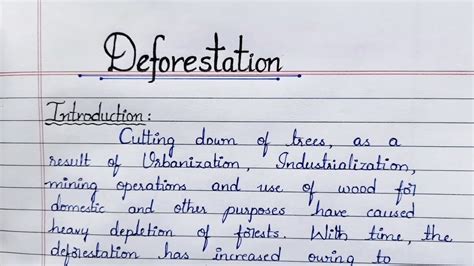 Deforestation
Introduction:
Cutting down of trees, as a
result of Urbanization, Industrialization,
mining operations and use of wood for
domestic and other purposes have caused
heavy depletion of forests. With time, the
deforestation has increased owing to